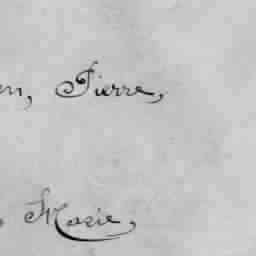 en, Pierre,
Marie,